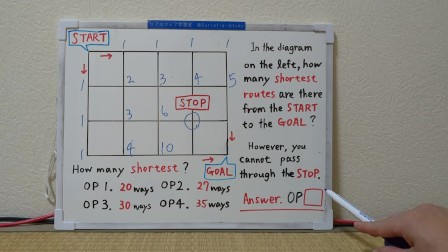 START
1 1 1 1
1 2 3 4 5
STOP
1 3 6
1 4 10
GOAL
In the diagram
on the left, how
many shortest
routes are there
from the START
to the GOAL?
However, you
cannot pass
through the STOP.
How many shortest?
OP 1. 20 ways OP 2. 27 ways
OP 3. 30 ways OP 4. 35 ways
Answer. OP